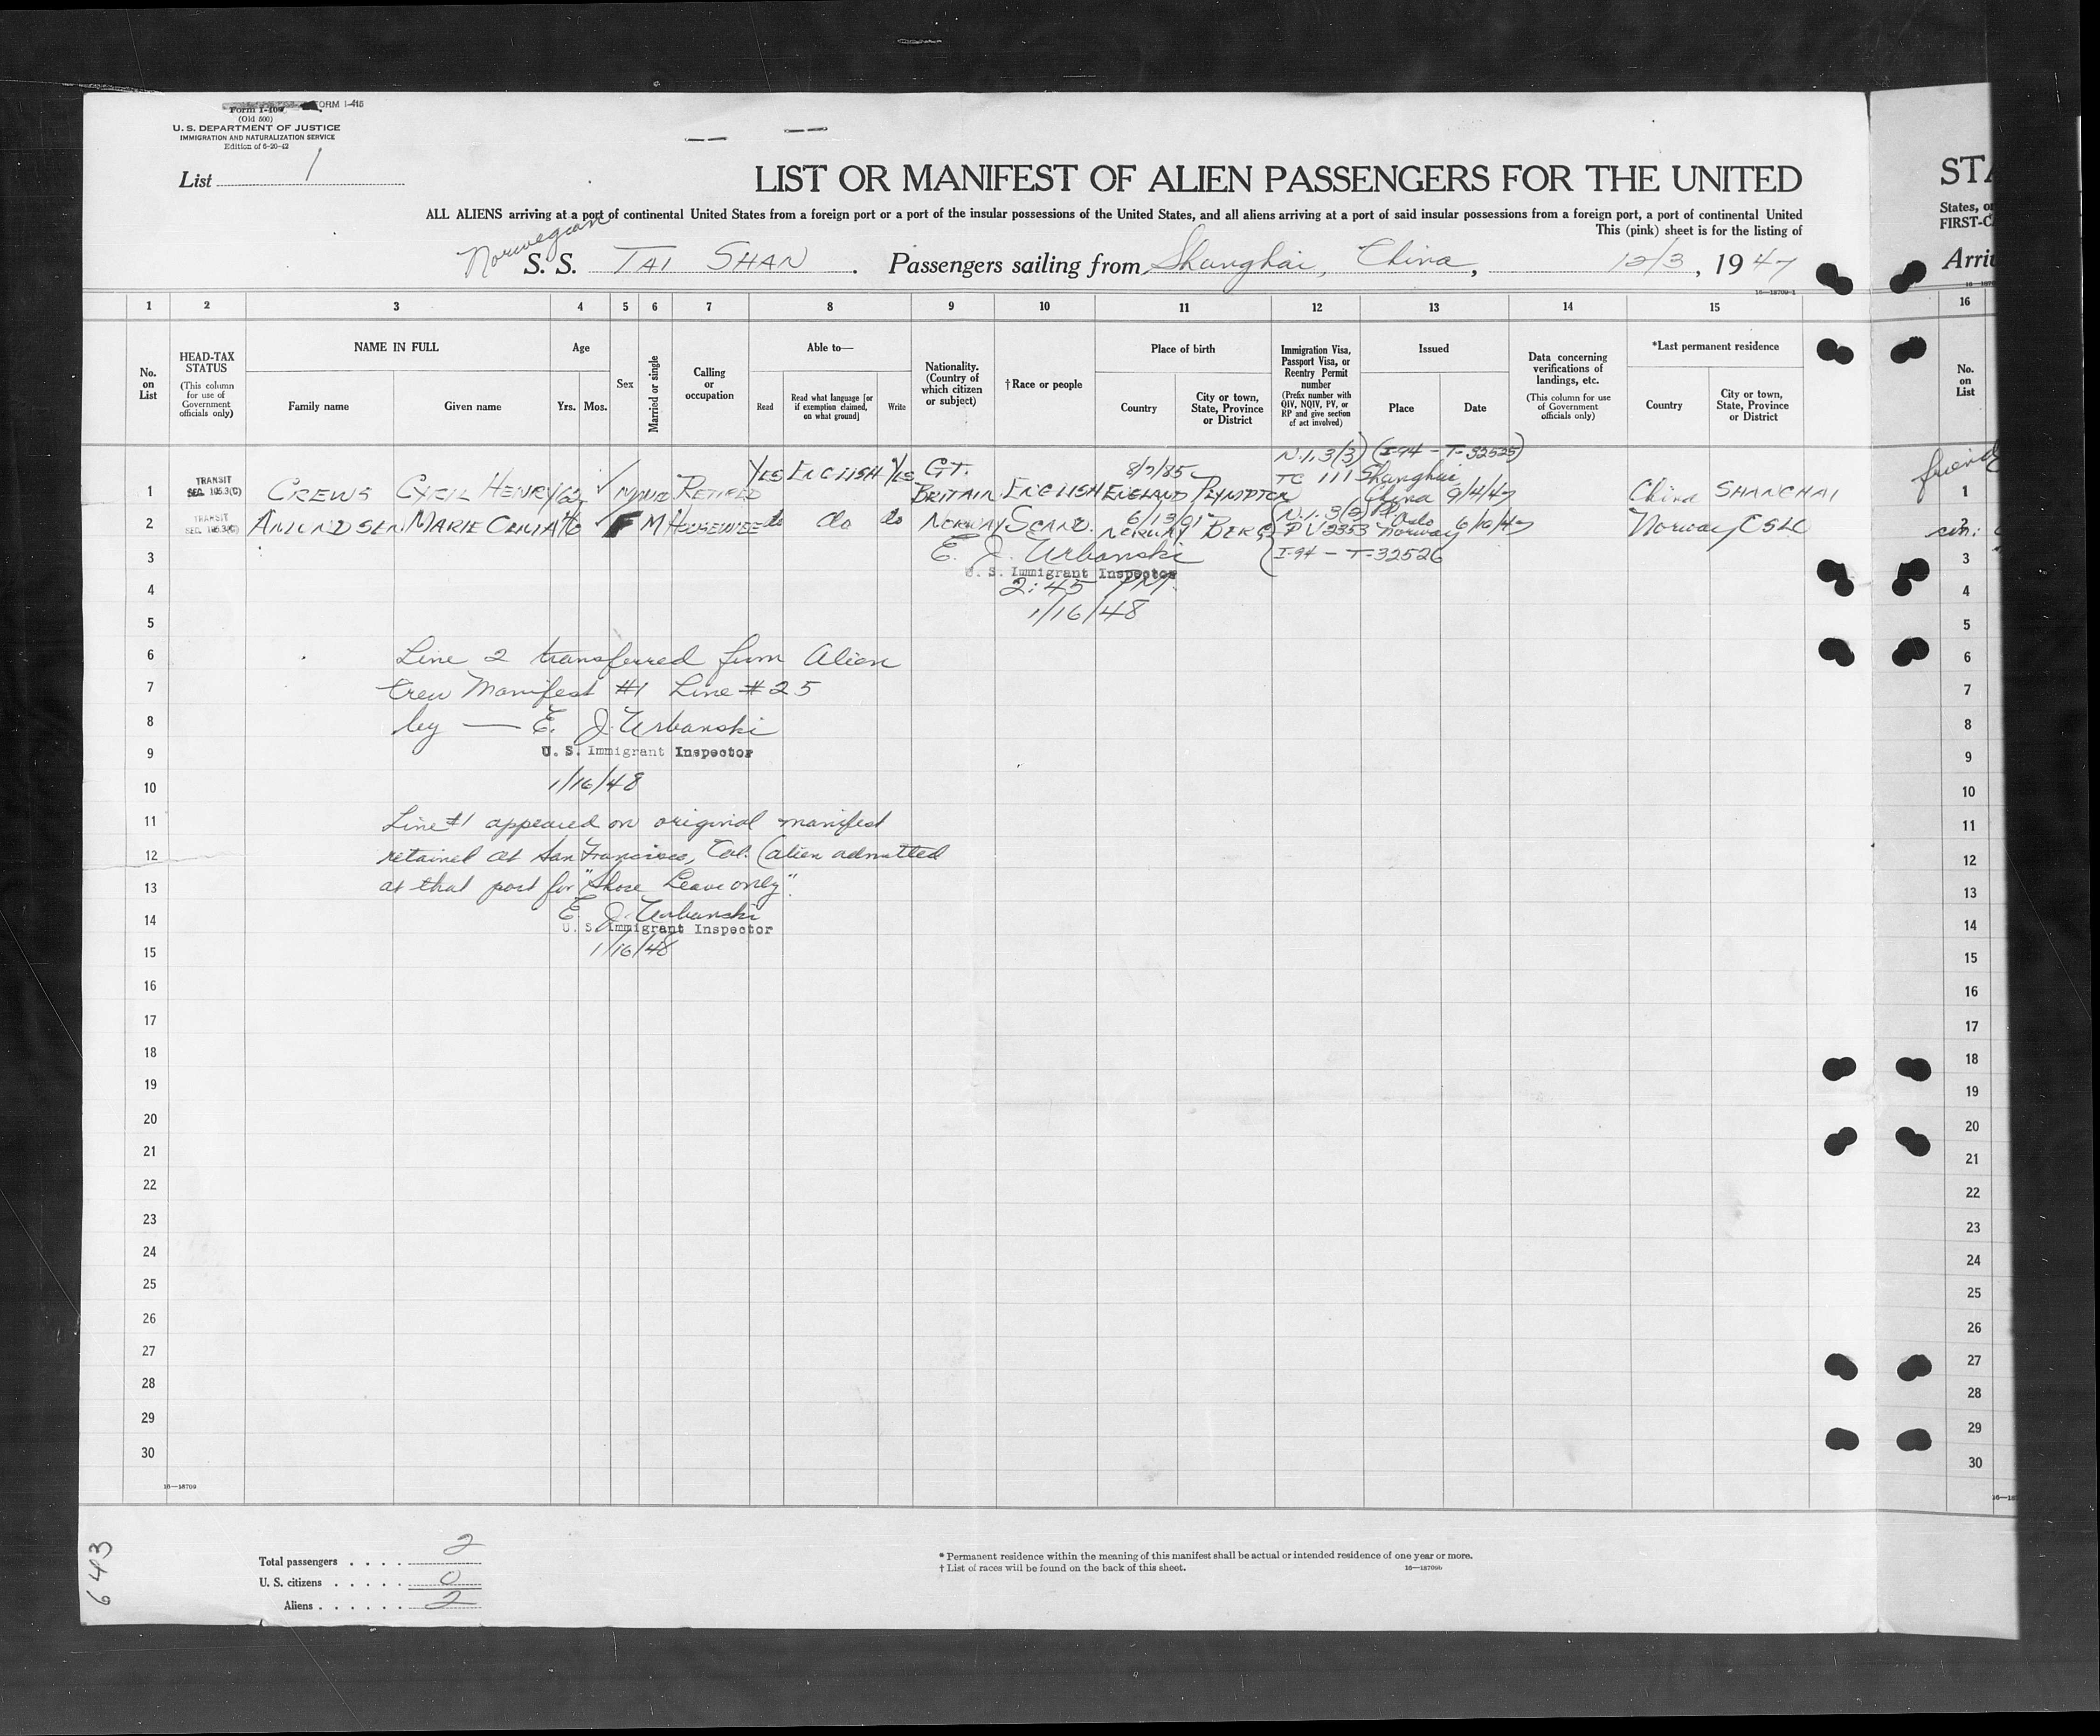 Form I-404 FORM I-415
(Old 500)
U. S. DEPARTMENT OF JUSTICE
IMMIGRATION AND NATURALIZATION SERVICE
Edition of 6-20-42
List 1
LIST OR MANIFEST OF ALIEN PASSENGERS FOR THE UNITED
STA
ALL ALIENS arriving at a port of continental United States from a foreign port or a port of the insular possessions of the United States, and all aliens arriving at a port of said insular possessions from a foreign port, a port of continental United
States, or
This (pink) sheet is for the listing of
FIRST-C
Norwegian
S. S. TAI SHAN . Passengers sailing from Shanghai, China, 12/3, 19 47
Arri
16—18709-1
1 2 3 4 5 6 7 8 9 10 11 12 13 14 15 16
No. on List
HEAD-TAX STATUS
(This column for use of Government officials only)
NAME IN FULL
Family name
Given name
Age
Yrs. Mos.
Sex
Married or single
Calling or occupation
Able to—
Read
Read what language [or if exemption claimed, on what ground]
Write
Nationality. (Country of which citizen or subject)
† Race or people
Place of birth
Country
City or town, State, Province or District
Immigration Visa, Passport Visa, or Reentry Permit number
(Prefix number with QIV, NQIV, PV, or RP and give section of act involved)
Issued
Place
Date
Data concerning verifications of landings, etc.
(This column for use of Government officials only)
*Last permanent residence
Country
City or town, State, Province or District
No. on List
N.I. 3(3) (I-94 - T-32525)
YES ENGLISH YES GT. 8/7/85 TC 111 Shanghai
TRANSIT
SEC. 105.3(C)
1 CREWS CYRIL HENRY 62 RETIRED BRITAIN ENGLISH ENGLAND PLYMPTON China 9/4/47 China SHANGHAI 1
friend
TRANSIT
SEC. 105.3(C)
2 AMUNDSEN MARIE 46 F M HOUSEWIFE do do do NORWAY SCAND. 6/13/01 NORWAY BERG N.I. 3(3) PV 2353 Oslo Norway 6/10/47 Norway OSLO 2
3 E. J. Urbanski I-94 - T-32526 3
U. S. Immigrant Inspector
4 2:45 PM. 4
1/16/48
5 5
6 Line 2 transferred from Alien 6
7 Crew Manifest #1 Line #25 7
8 by — E. J. Urbanski 8
9 U. S. Immigrant Inspector 9
10 1/16/48 10
11 Line #1 appeared on original manifest 11
12 retained at San Francisco, Cal. (alien admitted 12
13 at that port for "Shore Leave only". 13
14 E. J. Urbanski 14
U. S. Immigrant Inspector
15 1/16/48 15
16 16
17 17
18 18
19 19
20 20
21 21
22 22
23 23
24 24
25 25
26 26
27 27
28 28
29 29
30 30
16—18709
643
Total passengers . . . . 2
U. S. citizens . . . . . 0
Aliens . . . . . . 2
* Permanent residence within the meaning of this manifest shall be actual or intended residence of one year or more.
† List of races will be found on the back of this sheet.
16—18709b